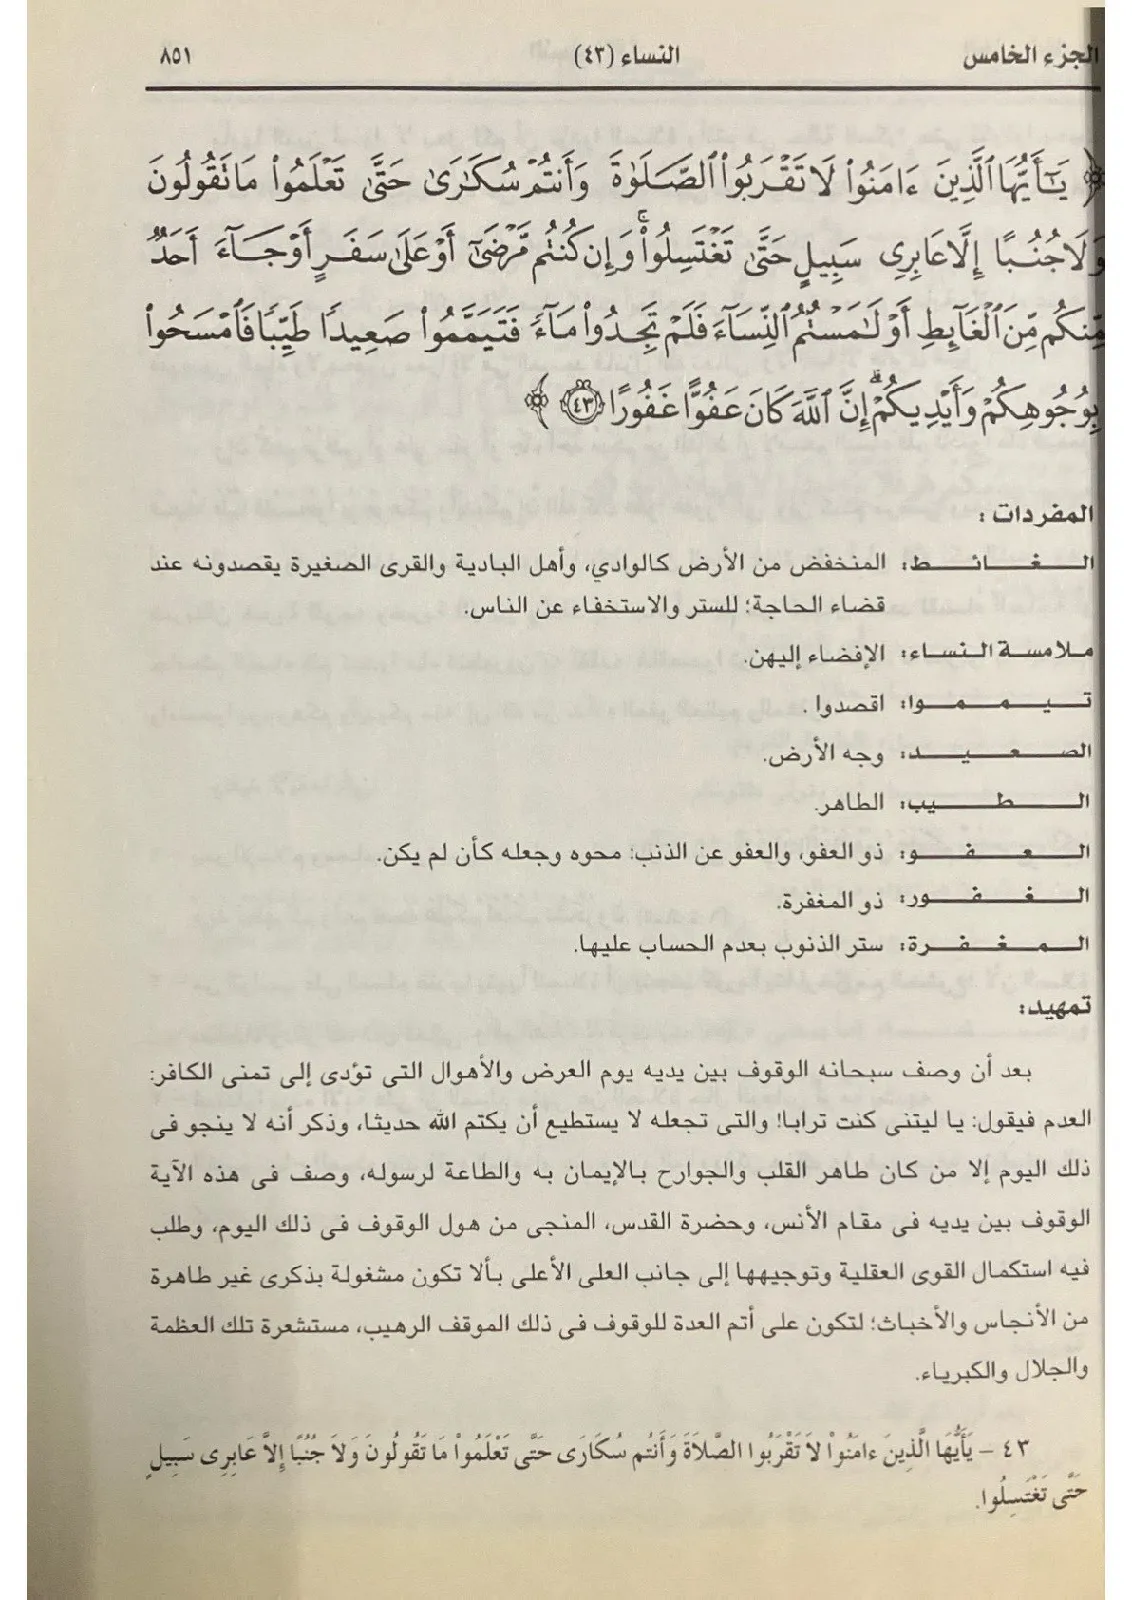 الجزء الخامس
النساء (٤٣)
٨٥١
﴿ يَٰٓأَيُّهَا ٱلَّذِينَ ءَامَنُوا۟ لَا تَقْرَبُوا۟ ٱلصَّلَوٰةَ وَأَنتُمْ سُكَٰرَىٰ حَتَّىٰ تَعْلَمُوا۟ مَا تَقُولُونَ
وَلَا جُنُبًا إِلَّا عَابِرِى سَبِيلٍ حَتَّىٰ تَغْتَسِلُوا۟ ۚ وَإِن كُنتُم مَّرْضَىٰٓ أَوْ عَلَىٰ سَفَرٍ أَوْ جَآءَ أَحَدٌ
مِّنكُم مِّنَ ٱلْغَآئِطِ أَوْ لَٰمَسْتُمُ ٱلنِّسَآءَ فَلَمْ تَجِدُوا۟ مَآءً فَتَيَمَّمُوا۟ صَعِيدًا طَيِّبًا فَٱمْسَحُوا۟
بِوُجُوهِكُمْ وَأَيْدِيكُمْ ۗ إِنَّ ٱللَّهَ كَانَ عَفُوًّا غَفُورًا ٤٣ ﴾
المفردات :
الـغـائـط: المنخفض من الأرض كالوادي، وأهل البادية والقرى الصغيرة يقصدونه عند
قضاء الحاجة؛ للستر والاستخفاء عن الناس.
ملامسة النساء: الإفضاء إليهن.
تـيـمـمـوا: اقصدوا .
الصـعـيـد: وجه الأرض.
الـطـيـب: الطاهر.
الـعـفـو: ذو العفو، والعفو عن الذنب: محوه وجعله كأن لم يكن.
الـغـفـور: ذو المغفرة.
الـمـغـفـرة: ستر الذنوب بعدم الحساب عليها.
تمهيد:
بعد أن وصف سبحانه الوقوف بين يديه يوم العرض والأهوال التى تؤدى إلى تمنى الكافر:
العدم فيقول: يا ليتنى كنت ترابا! والتى تجعله لا يستطيع أن يكتم الله حديثا، وذكر أنه لا ينجو فى
ذلك اليوم إلا من كان طاهر القلب والجوارح بالإيمان به والطاعة لرسوله، وصف فى هذه الآية
الوقوف بين يديه فى مقام الأنس، وحضرة القدس، المنجى من هول الوقوف فى ذلك اليوم، وطلب
فيه استكمال القوى العقلية وتوجيهها إلى جانب العلى الأعلى بألا تكون مشغولة بذكرى غير طاهرة
من الأنجاس والأخباث؛ لتكون على أتم العدة للوقوف فى ذلك الموقف الرهيب، مستشعرة تلك العظمة
والجلال والكبرياء.
٤٣ – يَأَيُّهَا الَّذِينَ ءامَنُواْ لاَ تَقْرَبُوا الصَّلاَةَ وَأَنتُم سُكَارَى حَتَّى تَعْلَمُواْ مَا تَقُولُونَ وَلاَ جُنُبًا إِلاَّ عَابِرِى سَبِيلٍ
حَتَّى تَغْتَسِلُوا.